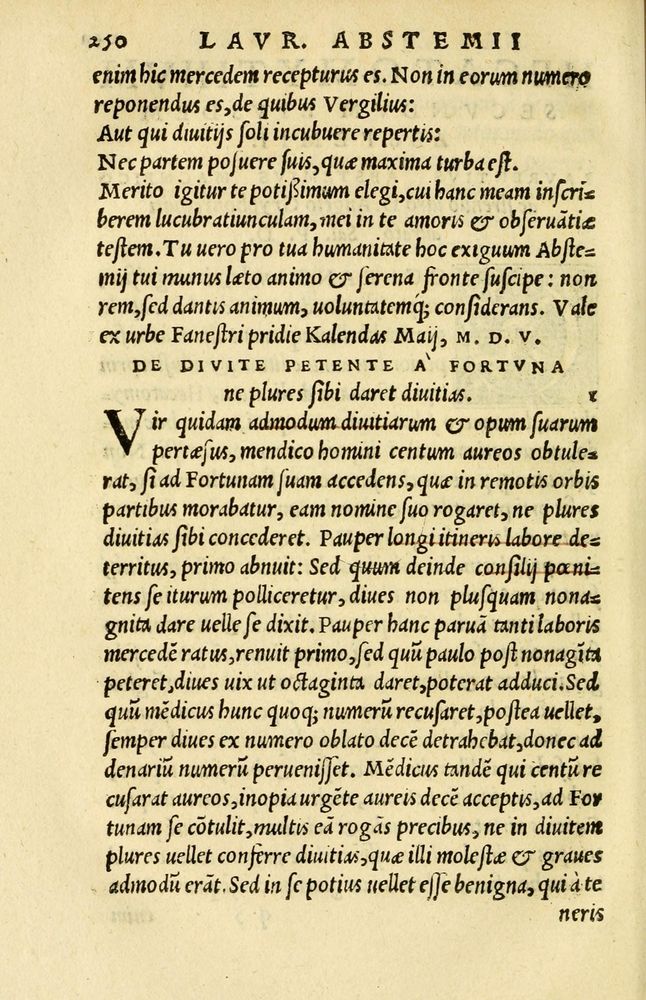 250 LAVR. ABSTEMII
enim hic mercedem recepturus es. Non in eorum numero
reponendus es, de quibus Vergilius:
Aut qui diuitijs soli incubuere repertis:
Nec partem posuere suis, quæ maxima turba est.
Merito igitur te potißimum elegi, cui hanc meam inscri=
berem lucubratiunculam, mei in te amoris & obseruãtiæ
testem. Tu uero pro tua humanitate hoc exiguum Abste=
mij tui munus læto animo & serena fronte suscipe: non
rem, sed dantis animum, uoluntatemq; considerans. Vale
ex urbe Fanestri pridie Kalendas Maij, M. D. V.
DE DIVITE PETENTE A` FORTVNA
ne plures sibi daret diuitias. 1
Vir quidam admodum diuitiarum & opum suarum
pertæsus, mendico homini centum aureos obtule=
rat, si ad Fortunam suam accedens, quæ in remotis orbis
partibus morabatur, eam nomine suo rogaret, ne plures
diuitias sibi concederet. Pauper longi itineris labore de=
territus, primo abnuit: Sed quum deinde consilij pœni=
tens se iturum polliceretur, diues non plusquam nona=
gnita dare uelle se dixit. Pauper hanc paruã tanti laboris
mercedẽ ratus, renuit primo, sed quũ paulo post nonagĩta
peteret, diues uix ut octaginta daret, poterat adduci. Sed
quũ mẽdicus hunc quoq; numerũ recusaret, postea uellet,
semper diues ex numero oblato decẽ detrahebat, donec ad
denariũ numerũ peruenisset. Mẽdicus tandẽ qui centũ re
cusarat aureos, inopia urgẽte aureis decẽ acceptis, ad For
tunam se cõtulit, multis eã rogãs precibus, ne in diuitem
plures uellet conferre diuitias, quæ illi molestæ & graues
admodũ erãt. Sed in se potius uellet esse benigna, qui à te
neris